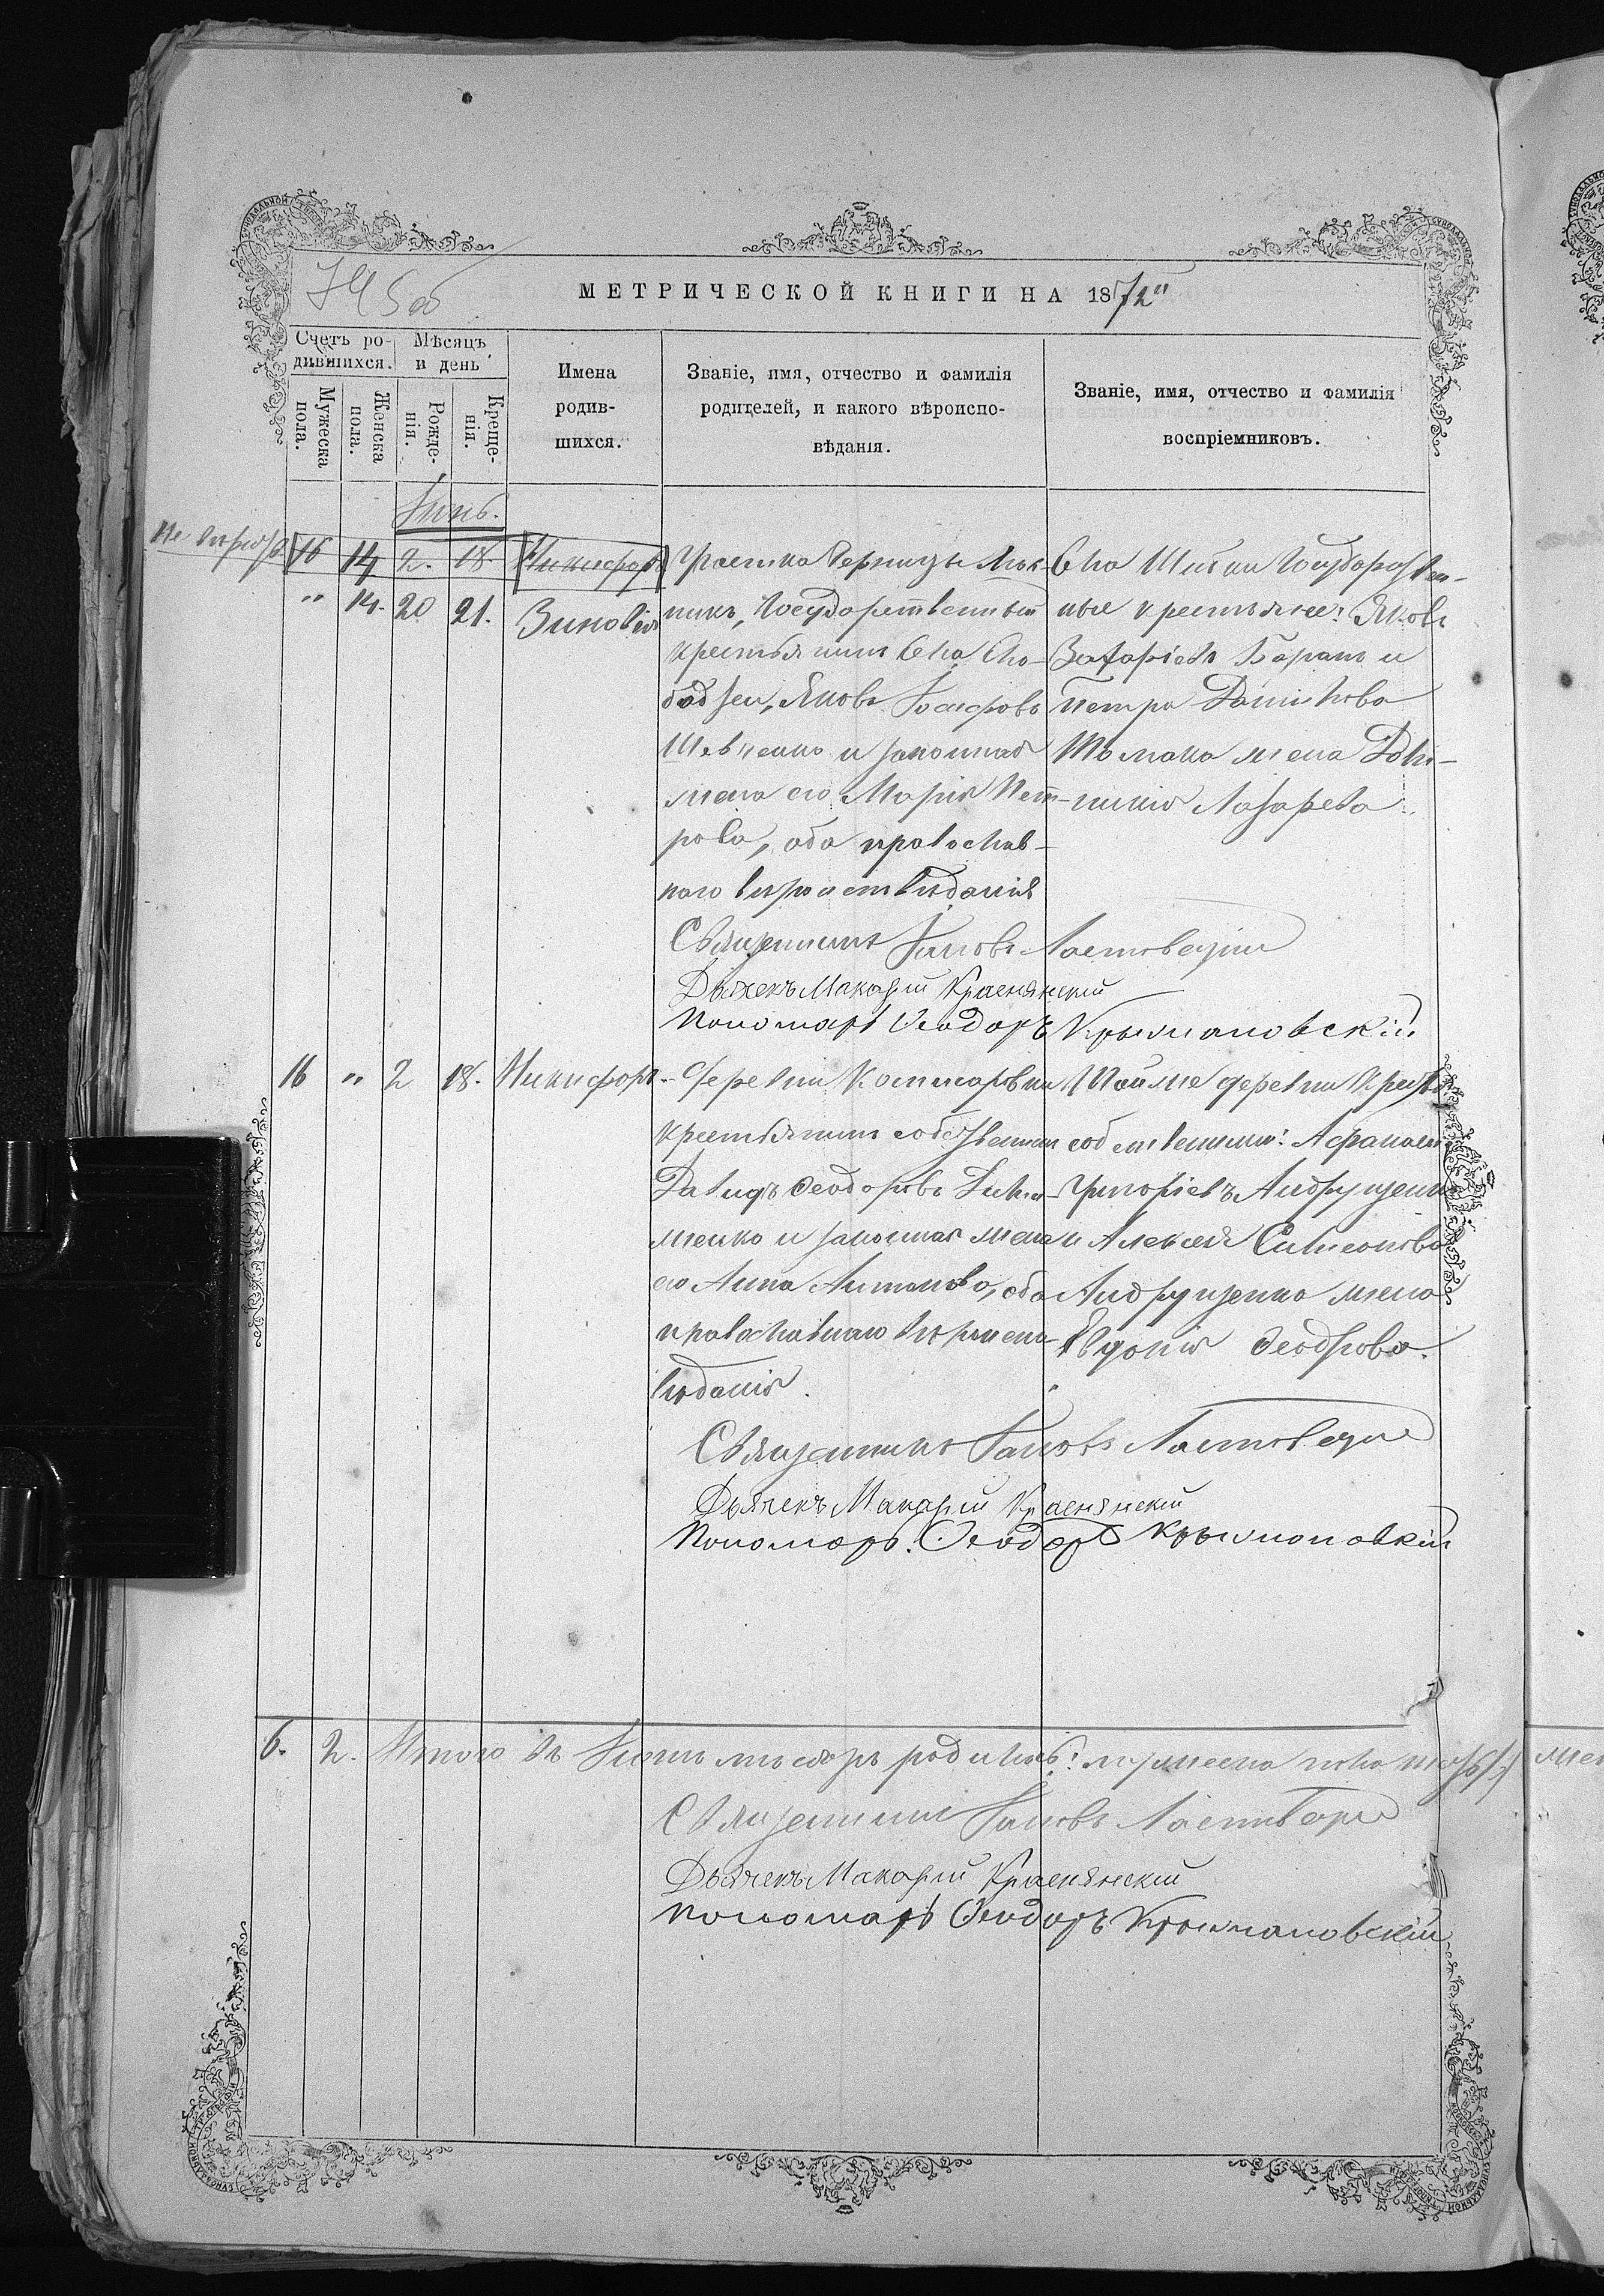 МЕТРИЧЕСКОЙ КНИГИ НА 1872
Счетъ ро-
дившихся.
Мѣсяцъ
и день
Мужеска
пола.
Женска
пола.
Рожде-
нія.
Креще-
нія.
Имена
родив-
шихся.
Званіе, имя, отчество и фамилія
родителей, и какого вѣроиспо-
вѣданія.
Званіе, имя, отчество и фамилія
воспріемниковъ.
Іюнь.
16 14 2. 18. Никифоръ
" 14. 20 21. Зиновія
Государственный
крестьянинъ Села Сло-
бодзеи, Яковъ Іосифовъ
Шевченко и законная
жена его Марія Пет-
рова, оба православ-
наго вѣроисповѣданія
Села Государствен-
ные крестьяне: Яковъ
Захаріевъ Баранъ и
Петра
жена
Лазарева
Священникъ Іаковъ
Дьячекъ Макарій Краснянскій
Пономарь Ѳеодоръ Крыжановскій.
16 " 2 18. Никифоръ.
Деревни Комисаровки
крестьянинъ собственникъ
Давидъ Ѳеодоровъ
и законная жена
его Анна Антонова, оба
православнаго вѣроиспо-
вѣданія.
Той же деревни
собственники: Афанасій
Григоріевъ Андрущенко
и Алексѣя Симеонова
Андрущенко жена
Евдокія Ѳеодорова.
Священникъ Іаковъ
Дьячекъ Макарій Краснянскій
Пономарь Ѳеодоръ Крыжановскій
6. 2. Итого въ Іюнѣ мѣсяцѣ родилось: мужеска пола
Священникъ Іаковъ
Дьячекъ Макарій Краснянскій
Пономарь Ѳеодоръ Крыжановскій